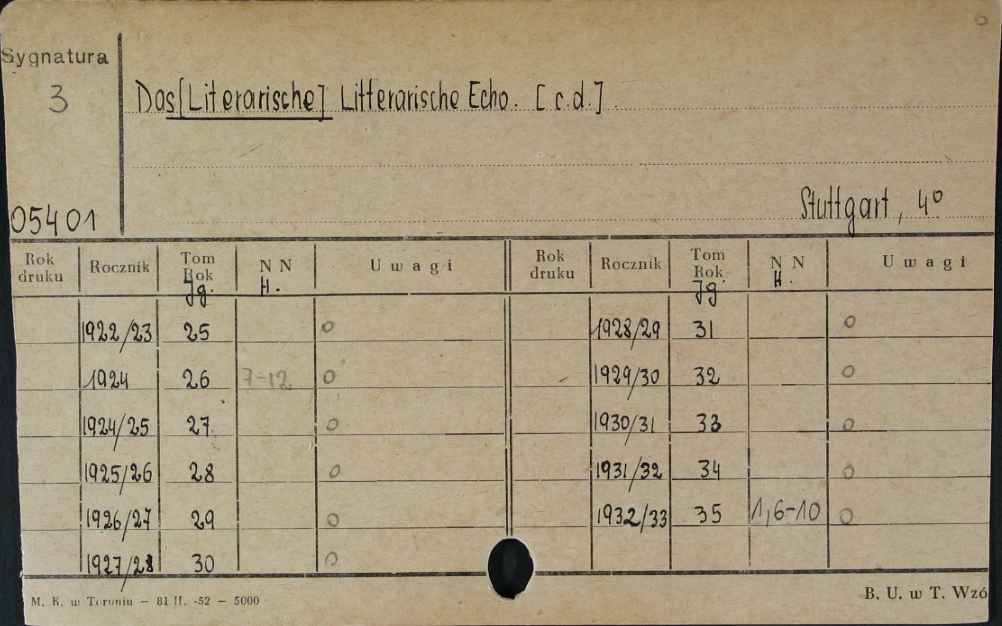 Sygnatura
3
Das [Literarische] Litterarische Echo. [c.d.]
05401
Stuttgart, 4°
Rok druku Rocznik Tom Rok Jg. NN H. Uwagi Rok druku Rocznik Tom Rok Jg. NN H. Uwagi
1922/23 25 o 1928/29 31 o
1924 26 7-12 o 1929/30 32 o
1924/25 27 o 1930/31 33 o
1925/26 28 o 1931/32 34 o
1926/27 29 o 1932/33 35 1,6-10 o
1927/28 30 o
M. K. w Toruniu — 81 II. -52 — 5000
B. U. w T. Wzó